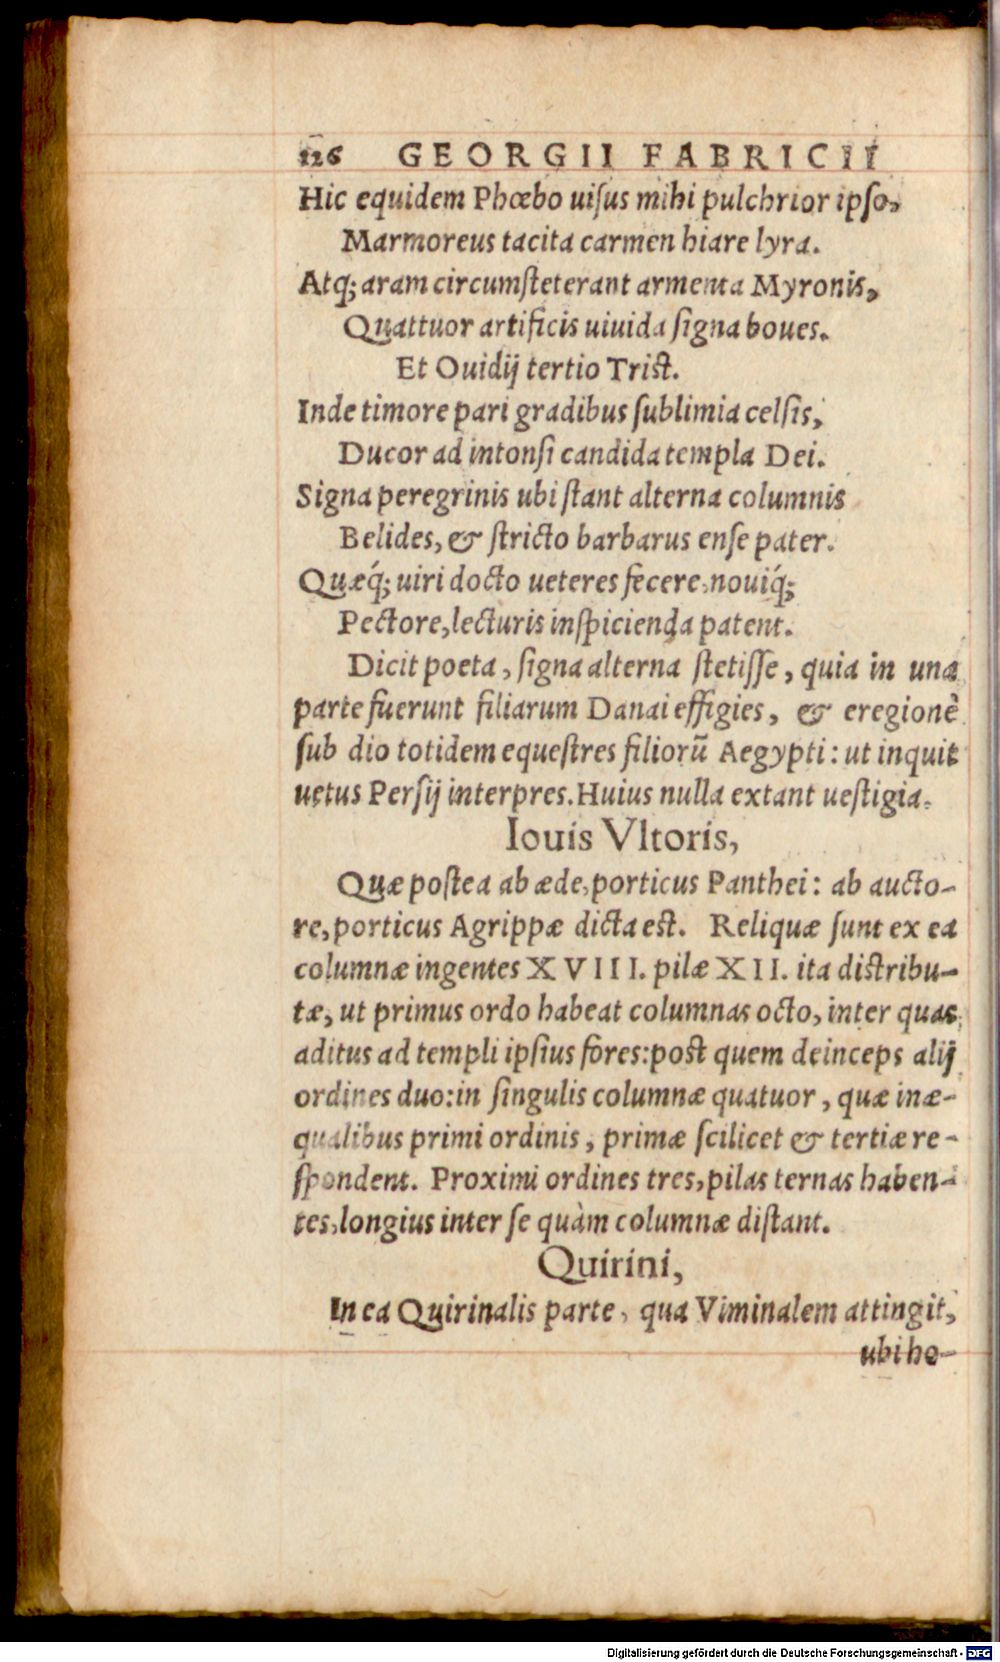 126 GEORGII FABRICII
Hic equidem Phœbo uiſus mihi pulchrior ipſo,
Marmoreus tacita carmen hiare lyra.
Atq; aram circumſteterant armenta Myronis,
Quattuor artificis uiuida ſigna boues.
Et Ouidij tertio Trist.
Inde timore pari gradibus ſublimia celſis,
Ducor ad intonſi candida templa Dei.
Signa peregrinis ubi ſtant alterna columnis
Belides, & ſtricto barbarus enſe pater.
Quæq́; uiri docto ueteres fecere, nouiq́;
Pectore, lecturis inſpicienda patent.
Dicit poeta, ſigna alterna ſtetiſſe, quia in una
parte fuerunt filiarum Danai effigies, & eregione
ſub dio totidem equeſtres filiorũ Aegypti: ut inquit
uetus Perſij interpres. Huius nulla extant ueſtigia.
Iouis Vltoris,
Quæ poſtea ab æde, porticus Panthei: ab aucto-
re, porticus Agrippæ dicta est. Reliquæ ſunt ex ea
columnæ ingentes XVIII. pilæ XII. ita distribu-
tæ, ut primus ordo habeat columnas octo, inter quas
aditus ad templi ipſius fores: post quem deinceps alij
ordines duo: in ſingulis columnæ quatuor, quæ inæ-
qualibus primi ordinis, primæ ſcilicet & tertiæ re-
ſpondent. Proximi ordines tres, pilas ternas haben-
tes, longius inter ſe quàm columnæ diſtant.
Quirini,
In ea Quirinalis parte, qua Viminalem attingit,
ubi ho-
Digitalisierung gefördert durch die Deutsche Forschungsgemeinschaft - DFG